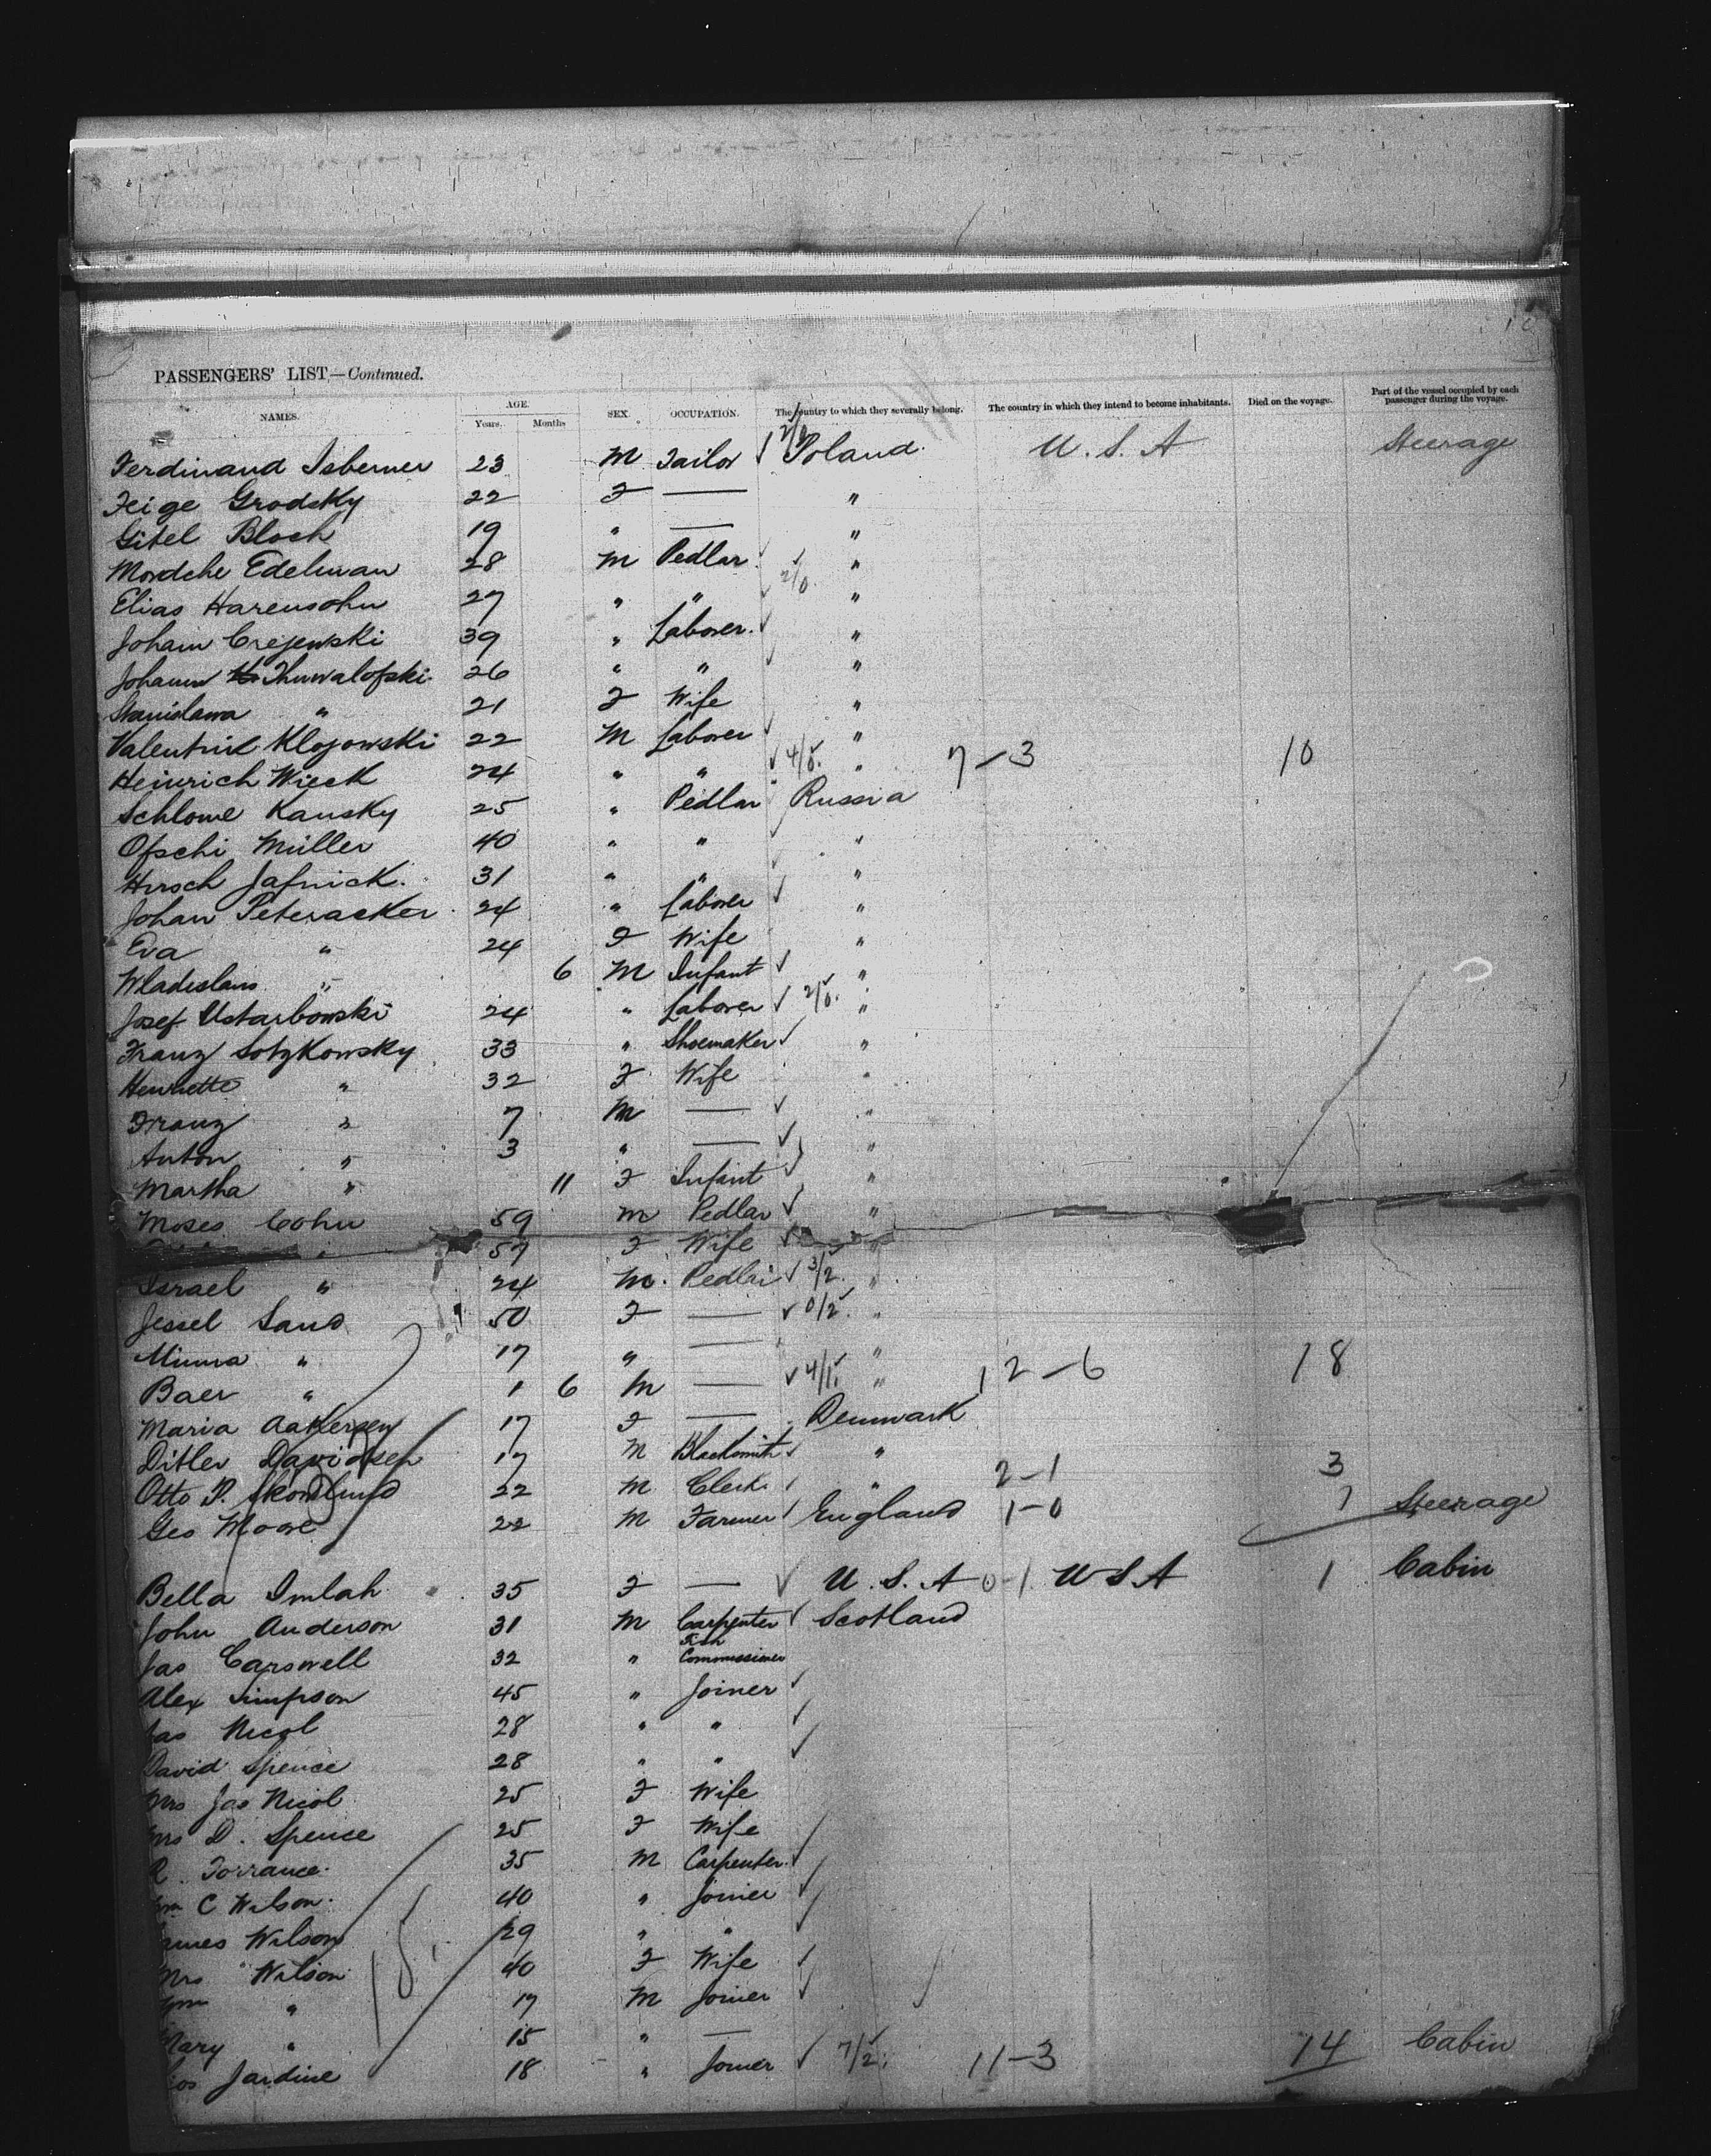 10
PASSENGERS' LIST,—Continued.
NAMES. AGE. Years. Months SEX. OCCUPATION. The country to which they severally belong. The country in which they intend to become inhabitants. Died on the voyage. Part of the vessel occupied by each passenger during the voyage.
Ferdinand Isberner 23 M Tailor Poland. U.S.A Steerage
Feige Grodsky 22 F — "
Gitel Bloch 19 " — "
Mordche Edelman 28 M Pedlar "
Elias Harensohn 27 " " "
Johann Crejewski 39 " Laborer. "
Johann Thuwalofski 26 " " "
Stanislawa " 21 F Wife "
Valentind Klojowski 22 M Laborer "
Heinrich Wieck 24 " " 4/0. " 7-3 10
Schlome Kansky 25 " Pedlar Russia
Ofschi Müller 40 " " "
Hirsch Jafnick. 31 " " "
Johan Peteracker 24 " Laborer "
Eva " 24 F Wife "
Wladislaus " 6 M Infant "
Josef Ustarbowski 24 " Laborer 2/0. "
Franz Sotzkowsky 33 " Shoemaker "
Henriette " 32 F Wife "
Franz " 7 M — "
Anton " 3 " — "
Martha " 11 F Infant "
Moses Cohn 59 M Pedlar "
" 57 F Wife "
Israel " 24 M. Pedlar 3/2. "
Jessel Sand 50 F — 0/2. "
Minna " 17 " — "
Baer " 1 6 M — 4/1. " 12-6 18
Maria Aakersen 17 F — Denmark
Ditlev Davidsen 17 M Blacksmith "
Otto P. Skomlund 22 M Clerk. " 2-1 3
Geo Moore 22 M Farmer England 1-0 1 Steerage
Bella Imlah 35 F — U.S.A 0-1 USA 1 Cabin
John Anderson 31 M Carpenter Scotland
Jas Carswell 32 " Fish Commissioner
Alex Simpson 45 " Joiner
Jas Nicol 28 " "
David Spence 28 " "
Mrs Jas Nicol 25 F Wife
Mrs D. Spence 25 F Wife
R. Torrance. 35 M Carpenter.
Wm C Wilson. 40 " Joiner
James Wilson 29 " "
Mrs " Wilson 40 F Wife
Wm " 17 M Joiner
Mary " 15 " —
Jardine 18 " Joiner 7/2. 11-3 14 Cabin